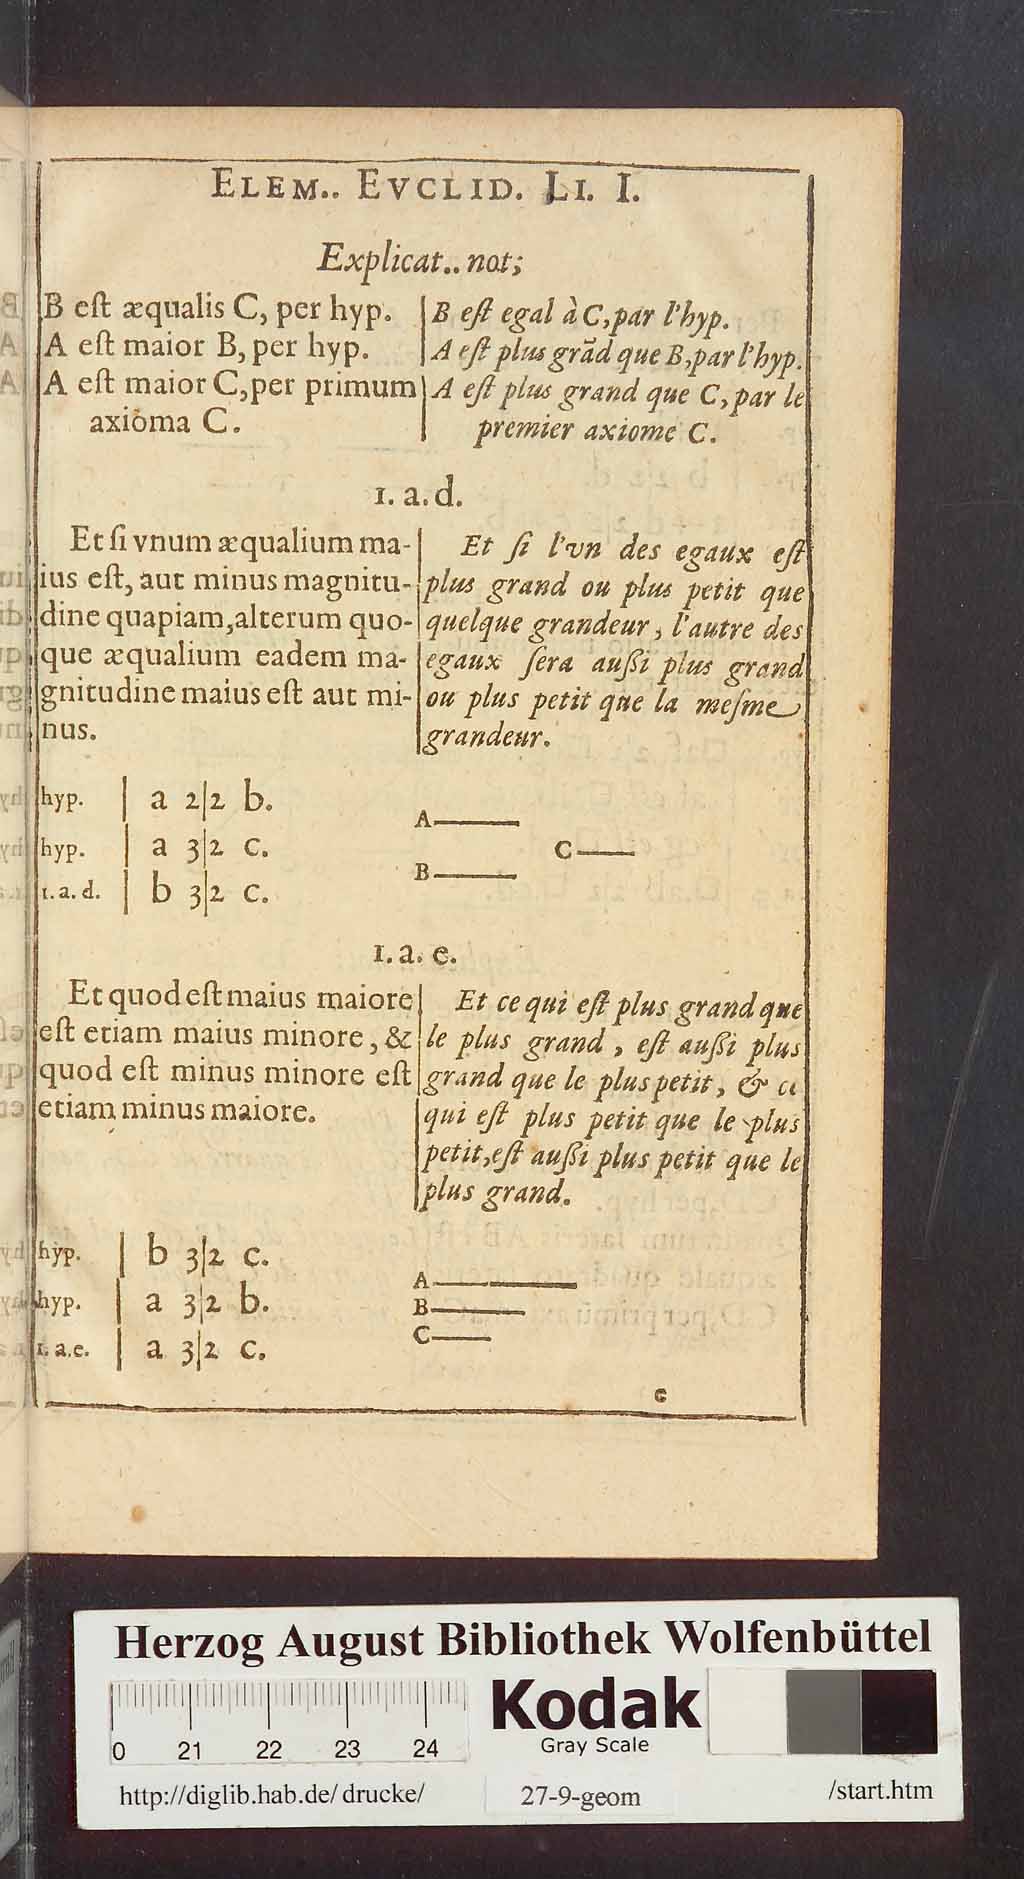 ELEM.. EVCLID. LI. I.
Explicat.. not;
B est æqualis C, per hyp.
A est maior B, per hyp.
A est maior C, per primum
axioma C.
B est egal à C, par l'hyp.
A est plus grãd que B, par l'hyp.
A est plus grand que C, par le
premier axiome C.
1. a. d.
Et si vnum æqualium ma-
ius est, aut minus magnitu-
dine quapiam, alterum quo-
que æqualium eadem ma-
gnitudine maius est aut mi-
nus.
Et si l'vn des egaux est
plus grand ou plus petit que
quelque grandeur, l'autre des
egaux sera außi plus grand
ou plus petit que la mesme
grandeur.
hyp. | a 2|2 b.
hyp. | a 3|2 c.
1. a. d. | b 3|2 c.
A
C
B
1. a. e.
Et quod est maius maiore
est etiam maius minore, &
quod est minus minore est
etiam minus maiore.
Et ce qui est plus grand que
le plus grand, est außi plus
grand que le plus petit, & ce
qui est plus petit que le plus
petit, est außi plus petit que le
plus grand.
hyp. | b 3|2 c.
hyp. | a 3|2 b.
1. a. e. | a 3|2 c.
A
B
C
c
Herzog August Bibliothek Wolfenbüttel
0 21 22 23 24
Kodak
Gray Scale
http://diglib.hab.de/drucke/ 27-9-geom /start.htm